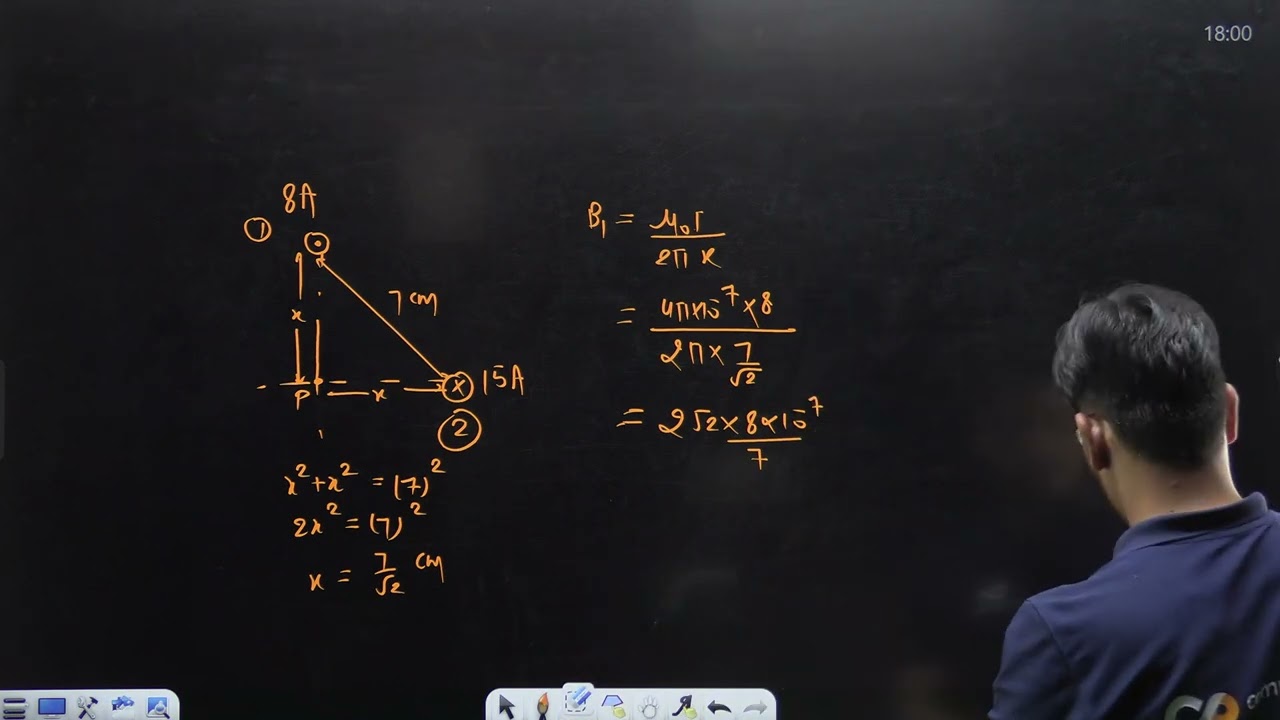 18:00
8A
1
7 cm
x
P
x
15A
2
x² + x² = (7)²
2x² = (7)²
x = 7/√2 cm
B₁ = μ₀I/2π x
= 4π×10⁻⁷×8/2π×7/√2
= 2√2×8×10⁻⁷/7